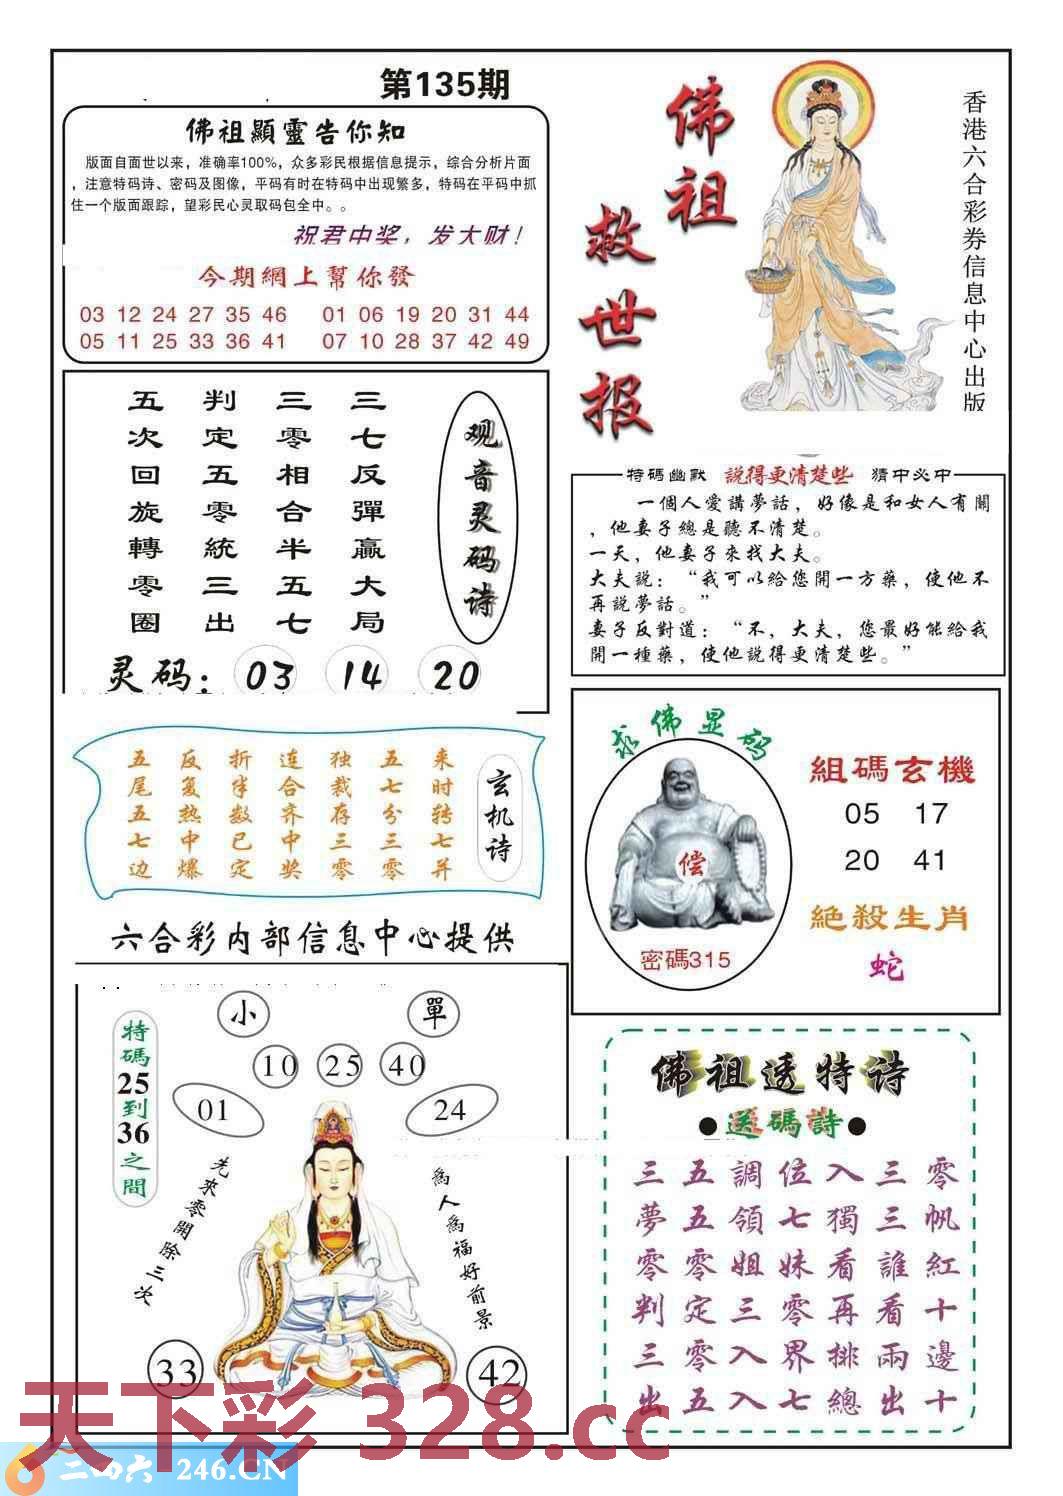 第135期
佛祖顯靈告你知
版面自面世以来，准确率100%，众多彩民根据信息提示，综合分析片面
，注意特码诗、密码及图像，平码有时在特码中出现繁多，特码在平码中抓
住一个版面跟踪，望彩民心灵取码包全中。。
祝君中奖，发大财！
今期網上幫你發
03 12 24 27 35 46 01 06 19 20 31 44
05 11 25 33 36 41 07 10 28 37 42 49
佛祖
救世报
香港六合彩券信息中心出版
观音灵码诗
三七反彈贏大局
三零相合半五七
判定五零統三出
五次回旋轉零圈
灵码：03 14 20
特碼幽默 說得更清楚些 猜中必中
一個人愛講夢話，好像是和女人有關
，他妻子總是聽不清楚。
一天，他妻子來找大夫。
大夫說：“我可以給您開一方藥，使他不
再說夢話。”
妻子反對道：“不，大夫，您最好能給我
開一種藥，使他說得更清楚些。”
玄机诗
来时转七并
五七分三零
独裁存三零
连合齐中奖
折半数已定
反复热中爆
五尾五七边
求佛显码
偿
密碼315
組碼玄機
05 17
20 41
絕殺生肖
蛇
六合彩内部信息中心提供
特碼25到36之間
小 單
10 25 40
01 24
先來零開除三次
為人為福好前景
33 42
佛祖透特诗
●送碼詩●
三五調位入三零
夢五領七獨三帆
零零姐妹看誰紅
判定三零再看十
三零入界排兩邊
出五入七總出十
天下彩 328.cc
二四六 246.CN